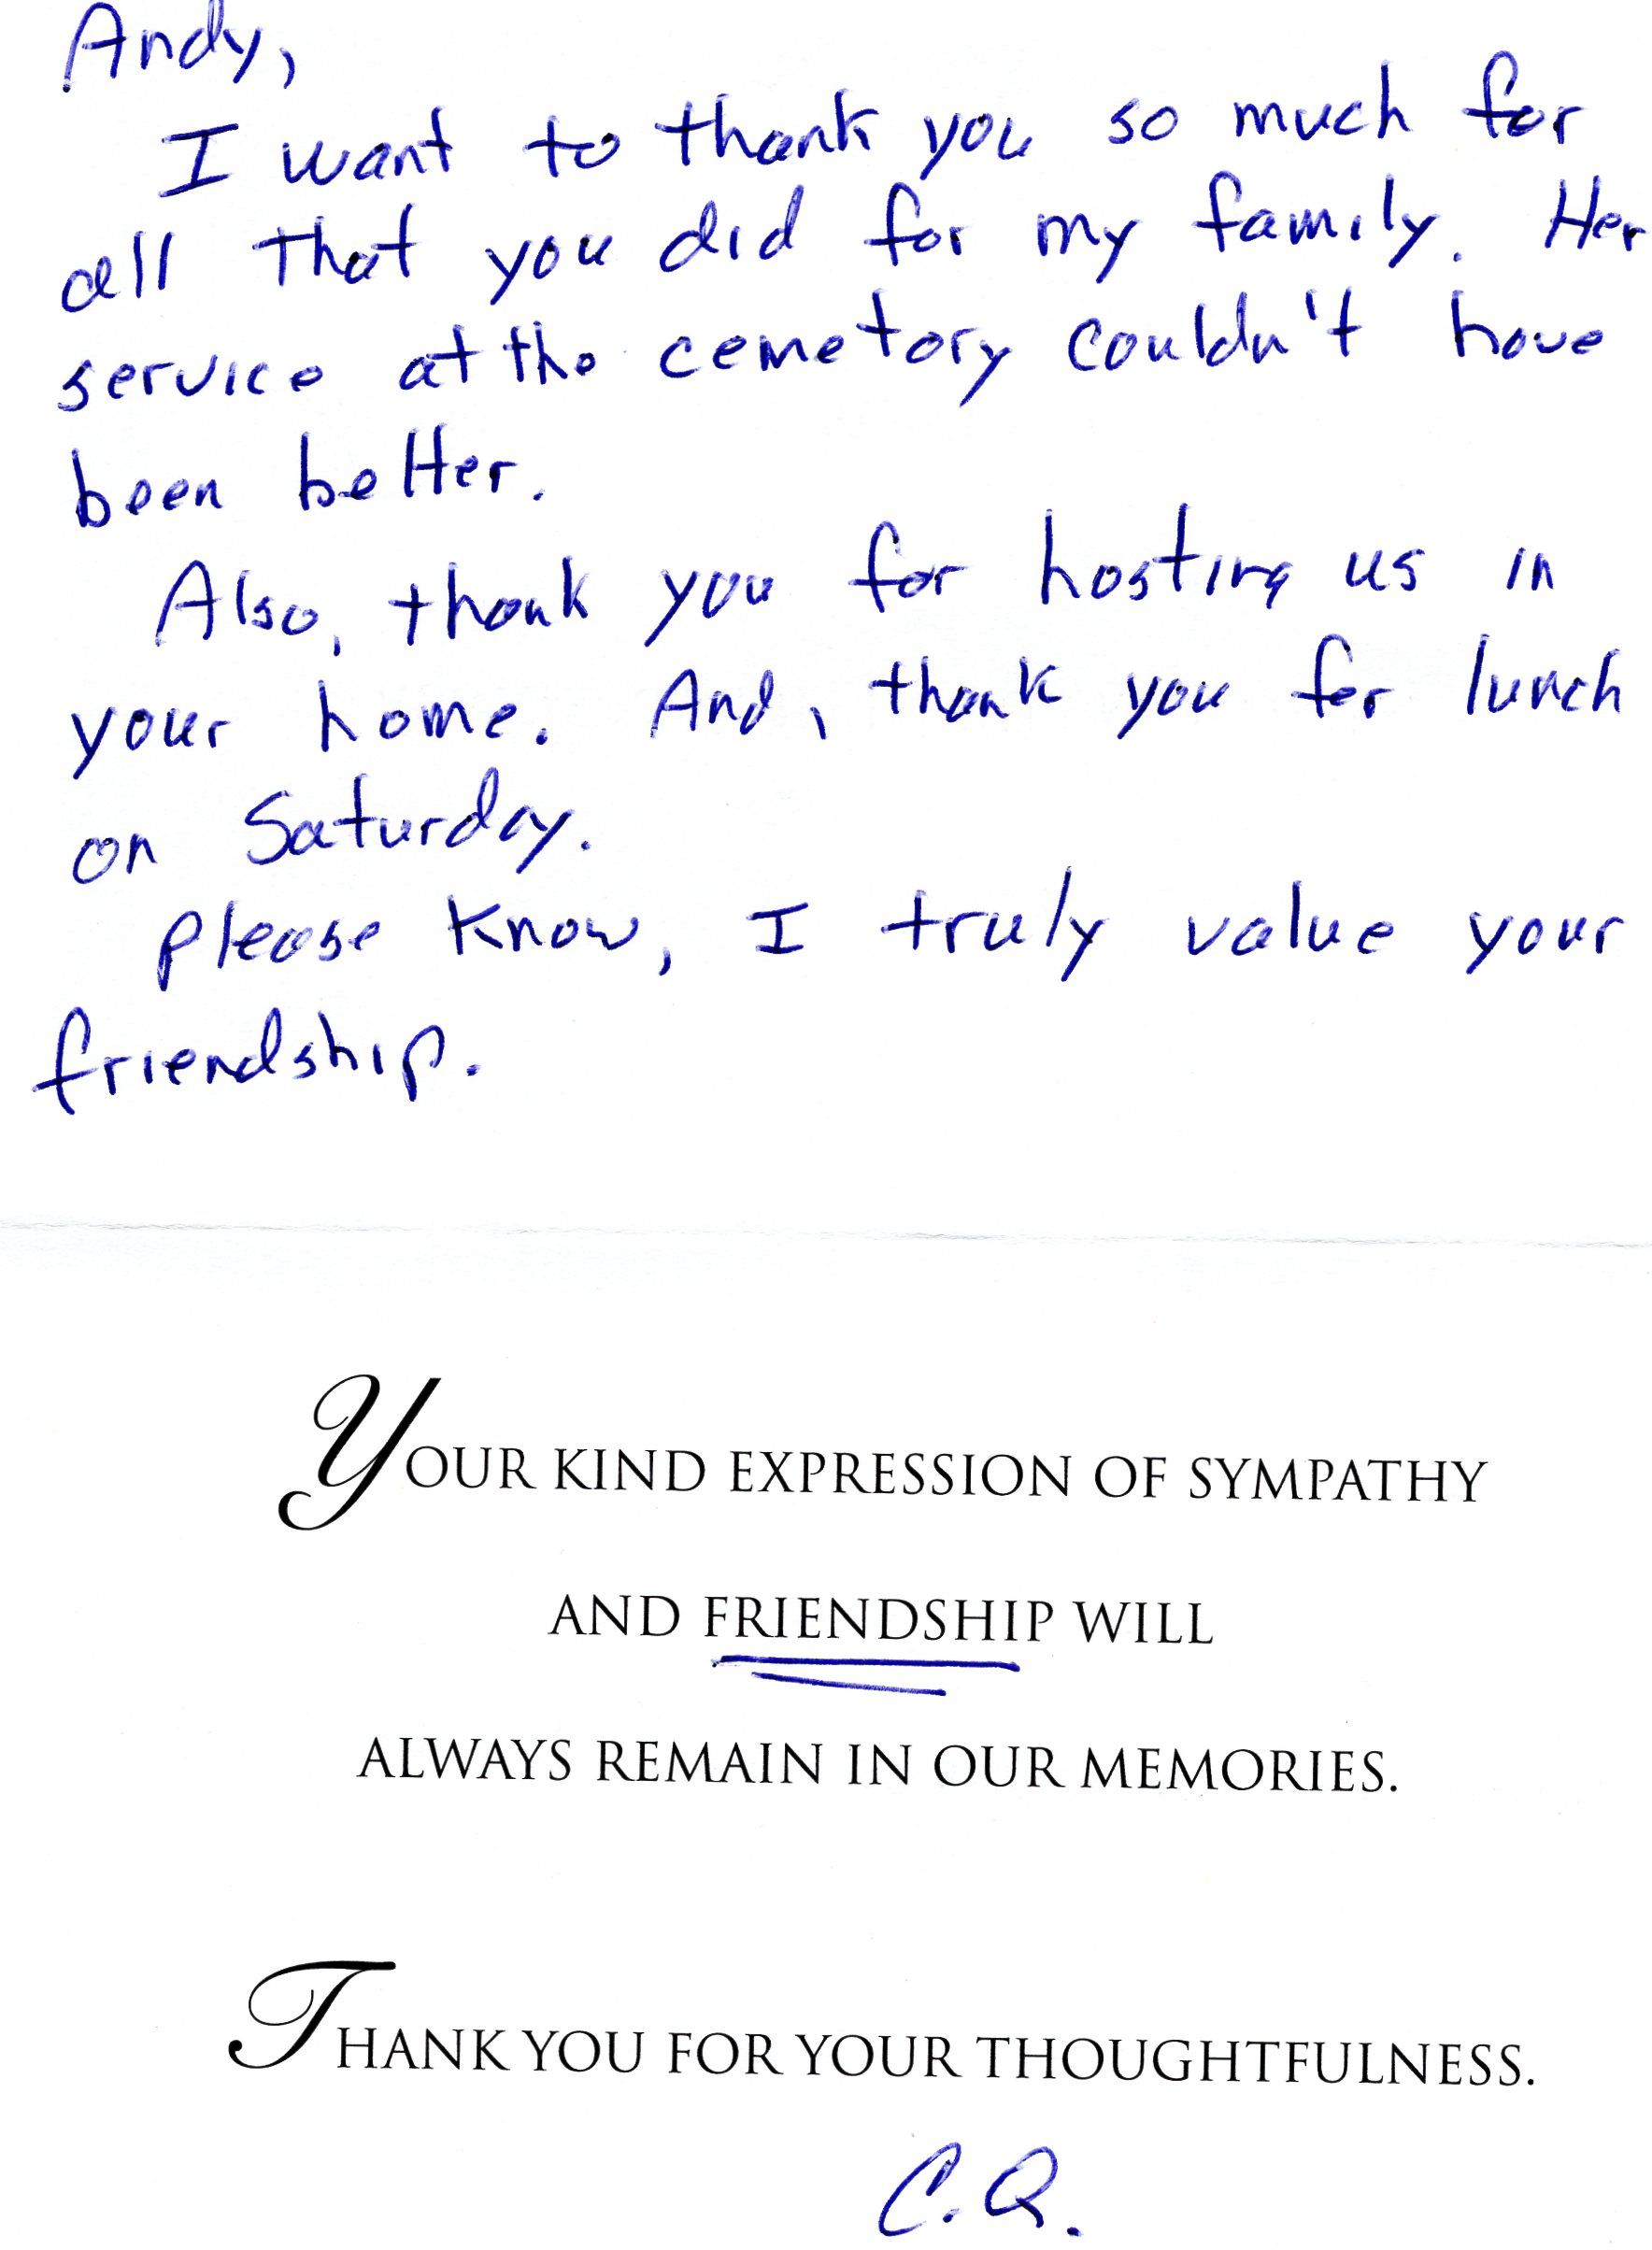 Andy,
I want to thank you so much for
all that you did for my family. Her
service at the cemetory couldn't have
been better.
Also, thank you for hosting us in
your home. And, thank you for lunch
on Saturday.
Please know, I truly value your
friendship.
YOUR KIND EXPRESSION OF SYMPATHY
AND FRIENDSHIP WILL
ALWAYS REMAIN IN OUR MEMORIES.
THANK YOU FOR YOUR THOUGHTFULNESS.
C.Q.